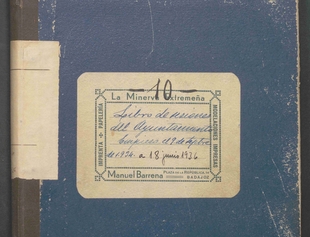 —10—
La Minerva Extremeña
IMPRENTA ✦ PAPELERIA
MODELACIONES IMPRESAS
Libro de sesiones
del Ayuntamiento
Empieza 12 de
de 1934 a 18 junio 1936
Manuel Barrena
PLAZA DE LA REPÚBLICA, 14
BADAJOZ